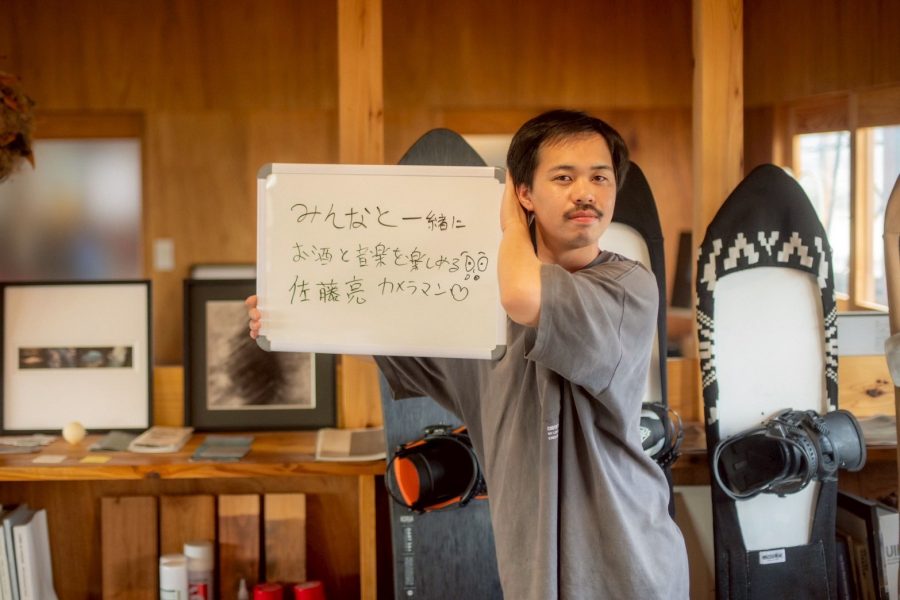 みんなと一緒に
お酒と音楽を楽しめる
佐藤亮 カメラマン♡